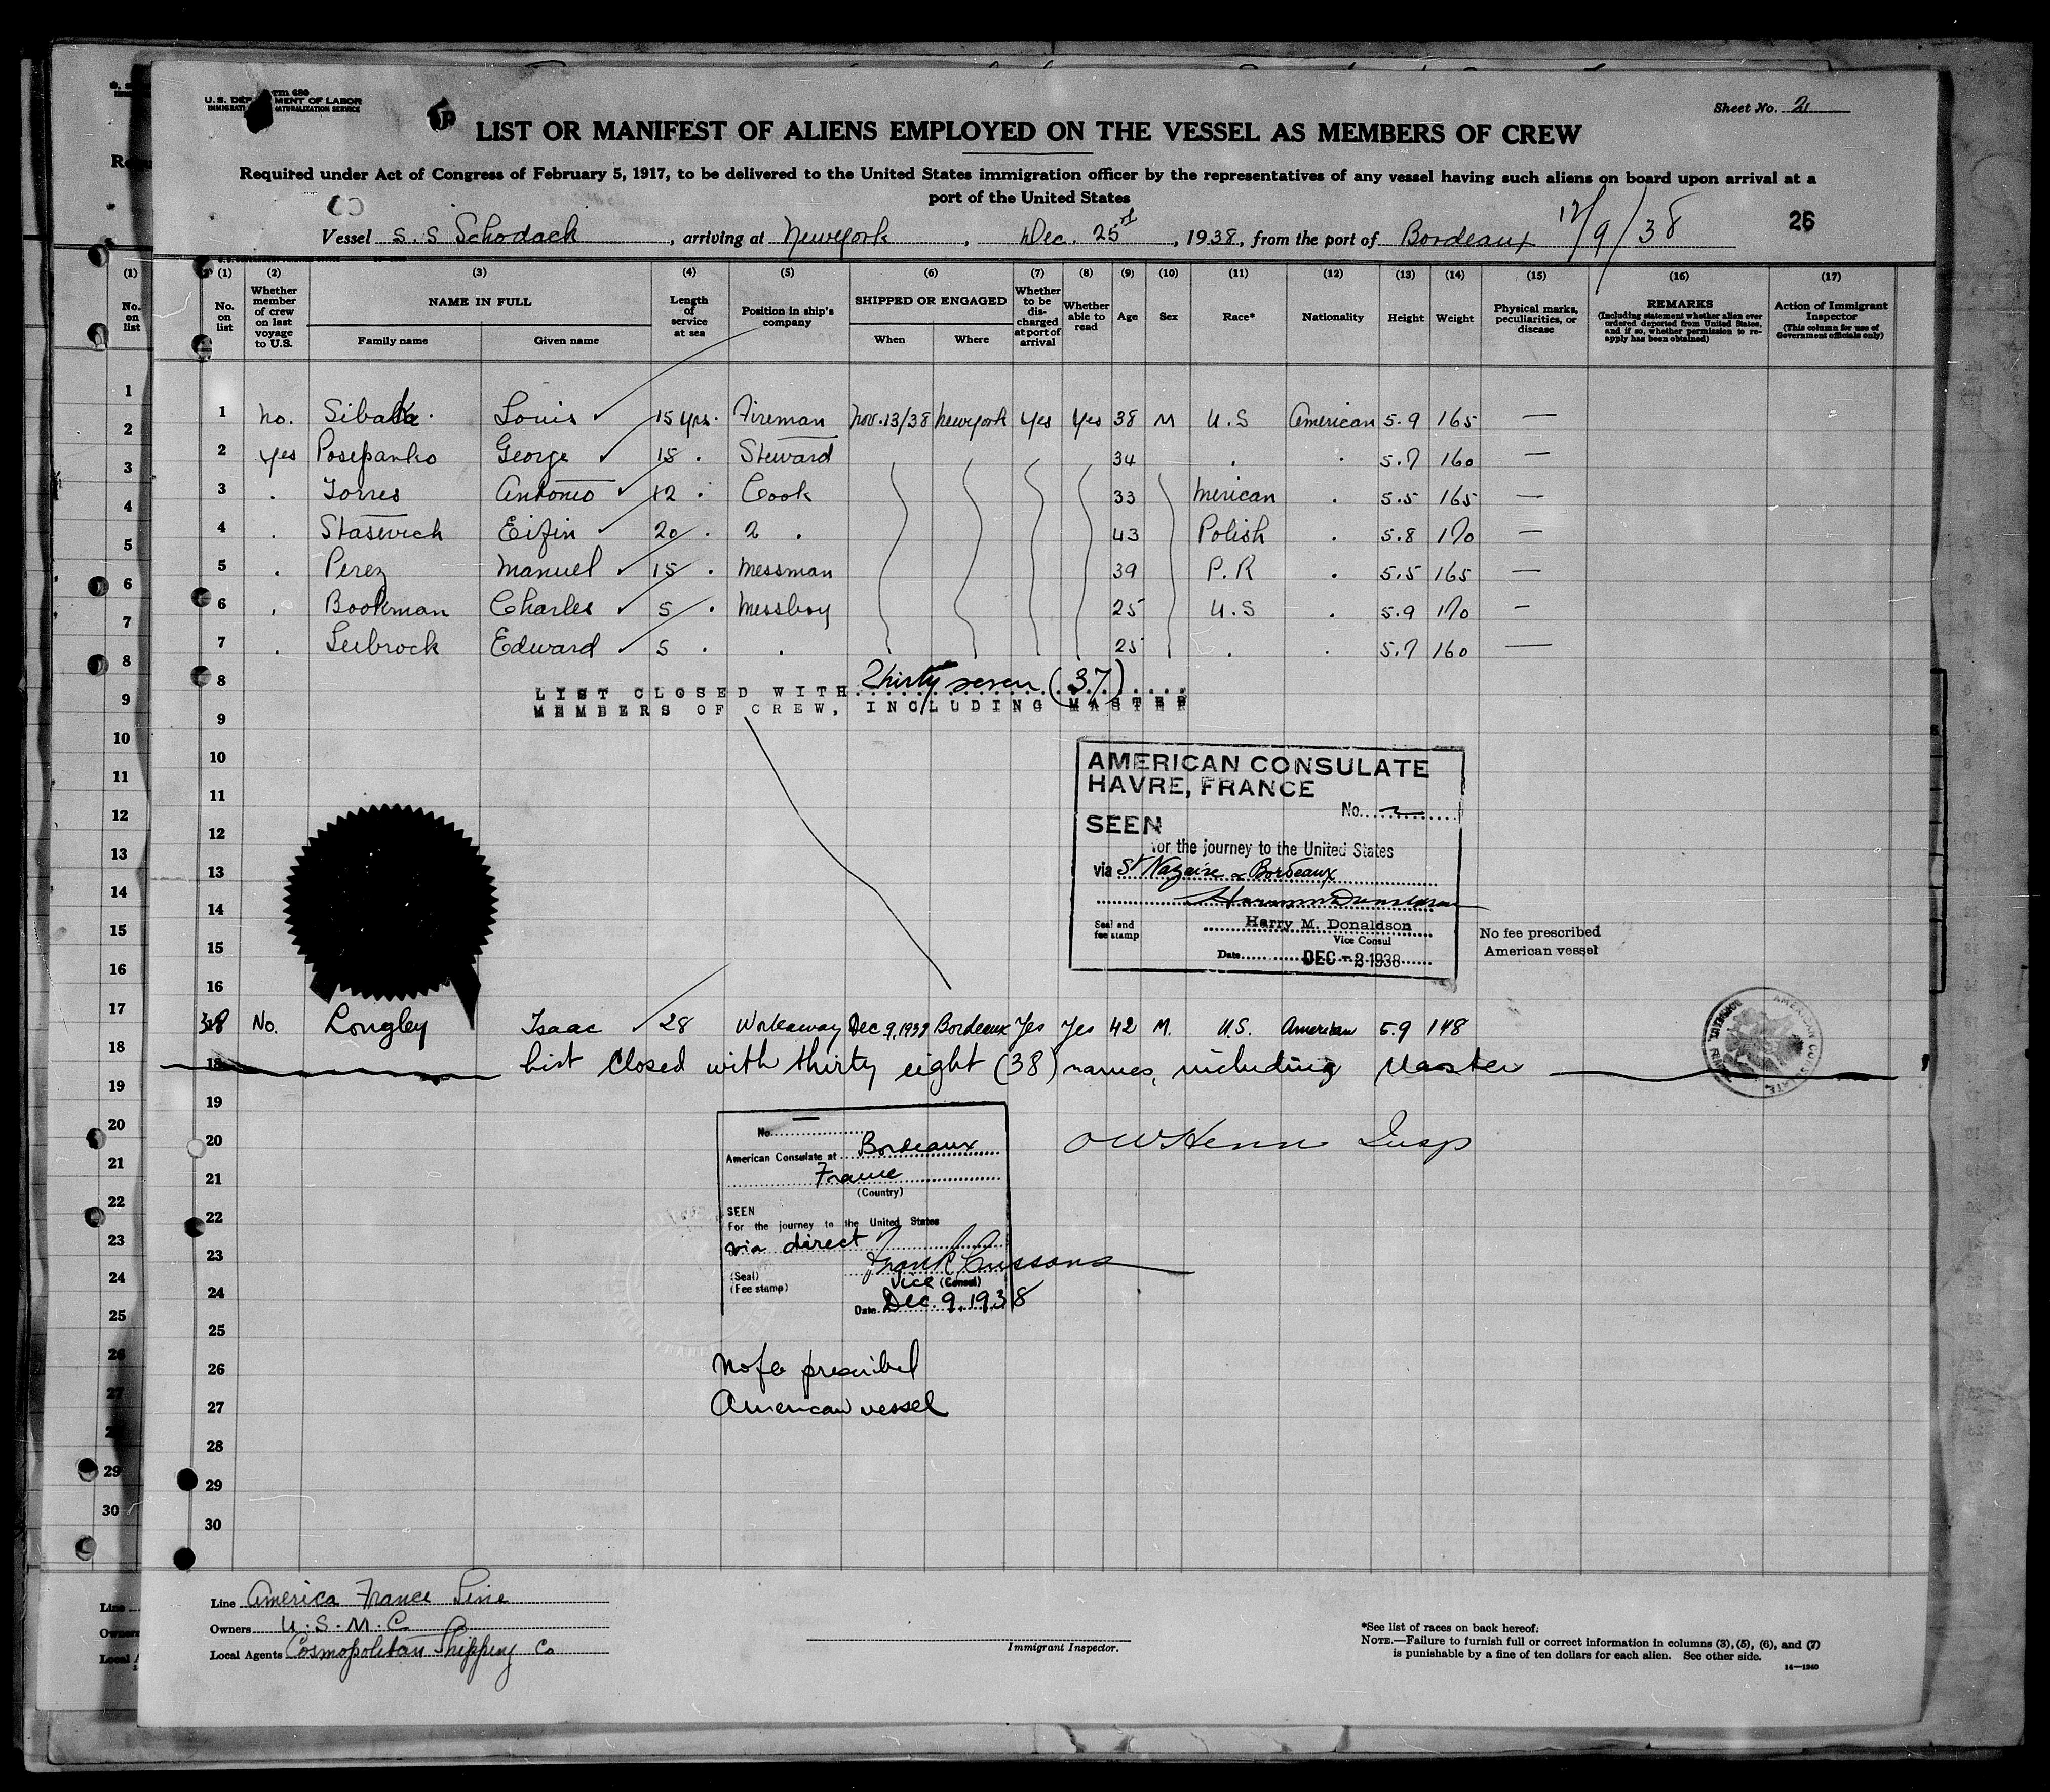 U.S. DEPARTMENT OF LABOR
Sheet No. 2
LIST OR MANIFEST OF ALIENS EMPLOYED ON THE VESSEL AS MEMBERS OF CREW
Required under Act of Congress of February 5, 1917, to be delivered to the United States immigration officer by the representatives of any vessel having such aliens on board upon arrival at a
port of the United States
12/9/38
26
Vessel S.S Schodack, arriving at New York, Dec. 25, 1938, from the port of Bordeaux
(1) (2) (3) (4) (5) (6) (7) (8) (9) (10) (11) (12) (13) (14) (15) (16) (17)
No. on list Whether member of crew on last voyage to U.S. NAME IN FULL Family name Given name Length of service at sea Position in ship's company SHIPPED OR ENGAGED When Where Whether to be discharged at port of arrival Whether able to read Age Sex Race* Nationality Height Weight Physical marks, peculiarities, or disease REMARKS (Including statement whether alien ever ordered deported from United States, and if so, whether permission to reapply has been obtained) Action of Immigrant Inspector (This column for use of Government officials only)
1 No. Louis 15 yrs. Fireman Nov. 13/38 New York Yes Yes 38 M U.S American 5.9 165 —
2 Yes Posepanko George 15 . Steward 34 . . 5.7 160 —
3 . Torres Antonio 12 . Cook 33 Merican . 5.5 165 —
4 . Stasevich Eifin 20 . 2 . 43 Polish . 5.8 170 —
5 . Perez Manuel 15 . Messman 39 P.R . 5.5 165 —
6 . Bookman Charles 5 . Messboy 25 U.S . 5.9 170 —
7 . Leibrock Edward 5 . . 25 . . 5.7 160 —
8
LIST CLOSED WITH Thirty seven (37)
MEMBERS OF CREW, INCLUDING MASTER
9
10
11
12
13
14
15
16
AMERICAN CONSULATE
HAVRE, FRANCE
No.
SEEN
for the journey to the United States
via St Nazaire & Bordeaux
Harry M. Donaldson
Vice Consul
Seal and fee stamp
Date DEC - 2 1938
No fee prescribed
American vessel
38 No. Longley Isaac 28 Workaway Dec. 9, 1938 Bordeaux Yes Yes 42 M. U.S. American 5.9 148
18 List closed with thirty eight (38) names, including Master
19
20
OW Henn Insp
21
22
23
24
25
26
27
28
29
30
No.
American Consulate at Bordeaux
France
(Country)
SEEN
For the journey to the United States
via direct
Frank Cussans
(Seal)
Vice (Consul)
(Fee stamp)
Date Dec. 9, 1938
No fee prescribed
American vessel
Line America France Line
Owners U.S.M.C.
Local Agents Cosmopolitan Shipping Co
Immigrant Inspector.
*See list of races on back hereof.
NOTE.—Failure to furnish full or correct information in columns (3), (5), (6), and (7)
is punishable by a fine of ten dollars for each alien. See other side.
14—1240